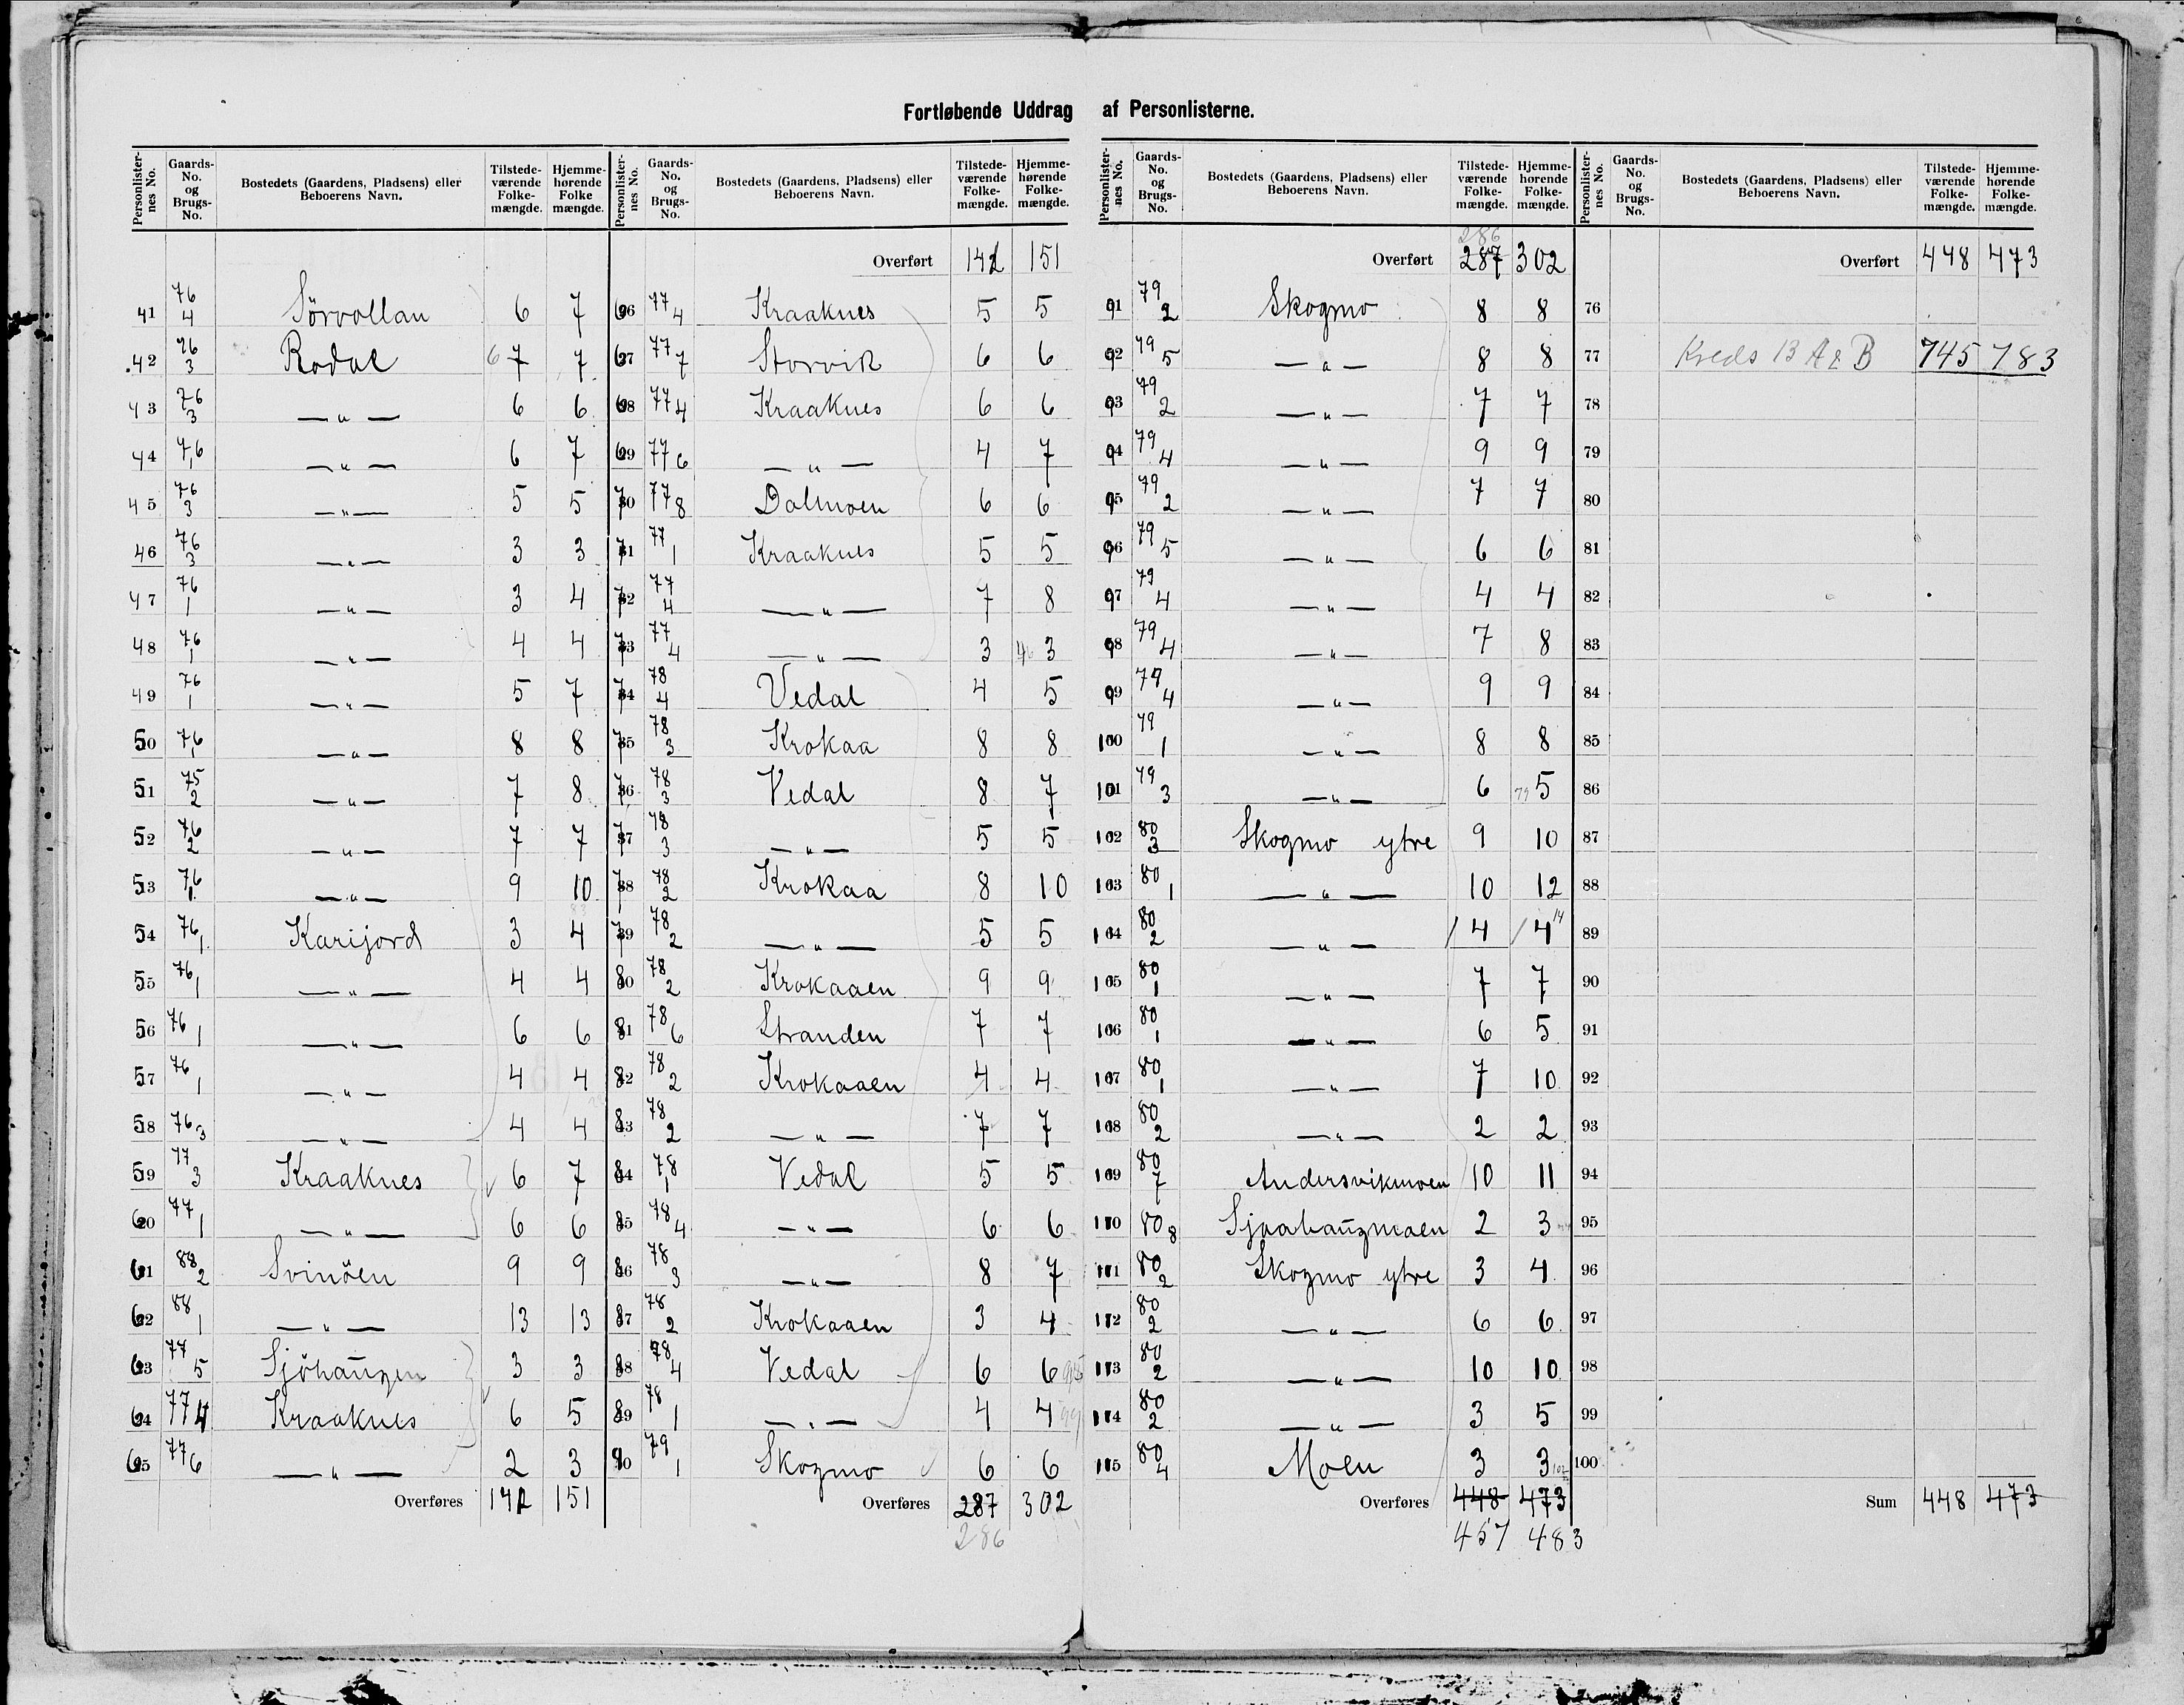 Fortløbende Uddrag af Personlisterne.
Personlister-nes No. Gaards-No. og Brugs-No. Bostedets (Gaardens, Pladsens) eller Beboerens Navn. Tilstede-værende Folke-mængde. Hjemme-hørende Folke mængde.
41 76 4 Sörvollan 6 7
42 76 3 Rodal 6 7 7
43 76 3 — " — 6 6
44 76 1 — " — 6 7
45 76 3 — " — 5 5
46 76 3 — " — 3 3
47 76 1 — " — 3 4
48 76 1 — " — 4 4
49 76 1 — " — 5 7
50 76 1 — " — 8 8
51 75 2 — " — 7 8
52 76 2 — " — 7 7
53 76 1 — " — 9 10
54 76 1 Karijord 3 4
55 76 1 — " — 4 4
56 76 1 — " — 6 6
57 76 1 — " — 4 4
58 76 3 — " — 4 4
59 77 3 Kraaknes 6 7
60 77 1 — " — 6 6
61 88 2 Svinöen 9 9
62 88 1 — " — 13 13
63 77 5 Sjöhaugen 3 3
64 77 4 Kraaknes 6 5
65 77 6 — " — 2 3
Overføres 142 151
Personlister-nes No. Gaards-No. og Brugs-No. Bostedets (Gaardens, Pladsens) eller Beboerens Navn. Tilstede-værende Folke-mængde. Hjemme-hørende Folke-mængde.
Overført 142 151
66 77 4 Kraaknes 5 5
67 77 7 Storvik 6 6
68 77 4 Kraaknes 6 6
69 77 6 — " — 4 7
70 77 8 Dalmoen 6 6
71 77 1 Kraaknes 5 5
72 77 4 — " — 7 8
73 77 4 — " — 3 3
74 78 4 Vedal 4 5
75 78 3 Krokaa 8 8
76 78 3 Vedal 8 7
77 78 3 — " — 5 5
78 78 2 Krokaa 8 10
79 78 2 — " — 5 5
80 78 2 Krokaaen 9 9
81 78 6 Stranden 7 7
82 78 2 Krokaaen 4 4
83 78 2 — " — 7 7
84 78 1 Vedal 5 5
85 78 4 — " — 6 6
86 78 3 — " — 8 7
87 78 2 Krokaaen 3 4
88 78 4 Vedal 6 6
89 78 1 — " — 4 4
90 79 1 Skogmo 6 6
Overføres 287 302
286
Personlister-nes No. Gaards-No. og Brugs-No. Bostedets (Gaardens, Pladsens) eller Beboerens Navn. Tilstede-værende Folke-mængde. Hjemme-hørende Folke-mængde.
286
Overført 287 302
91 79 2 Skogmo 8 8
92 79 5 — " — 8 8
93 79 2 — " — 7 7
94 79 4 — " — 9 9
95 79 2 — " — 7 7
96 79 5 — " — 6 6
97 79 4 — " — 4 4
98 79 4 — " — 7 8
99 79 4 — " — 9 9
100 79 1 — " — 8 8
101 79 3 — " — 6 5
102 80 3 Skogmo ytre 9 10
103 80 1 — " — 10 12
104 80 2 — " — / 4 / 4 14
105 80 1 — " — 7 7
106 80 1 — " — 6 5
107 80 1 — " — 7 10
108 80 2 — " — 2 2
109 80 7 Andersvikmoen 10 11
110 80 8 Sjaahaugmoen 2 3
111 80 2 Skogmo ytre 3 4
112 80 2 — " — 6 6
113 80 2 — " — 10 10
114 80 2 — " — 3 5
115 80 4 Moen 3 3
Overføres 448 473
457 483
Personlister-nes No. Gaards-No. og Brugs-No. Bostedets (Gaardens, Pladsens) eller Beboerens Navn. Tilstede-værende Folke-mængde. Hjemme-hørende Folke-mængde.
Overført 448 473
76
77 Kreds 13 A & B 745 783
78
79
80
81
82
83
84
85
86
87
88
89
90
91
92
93
94
95
96
97
98
99
100
Sum 448 473